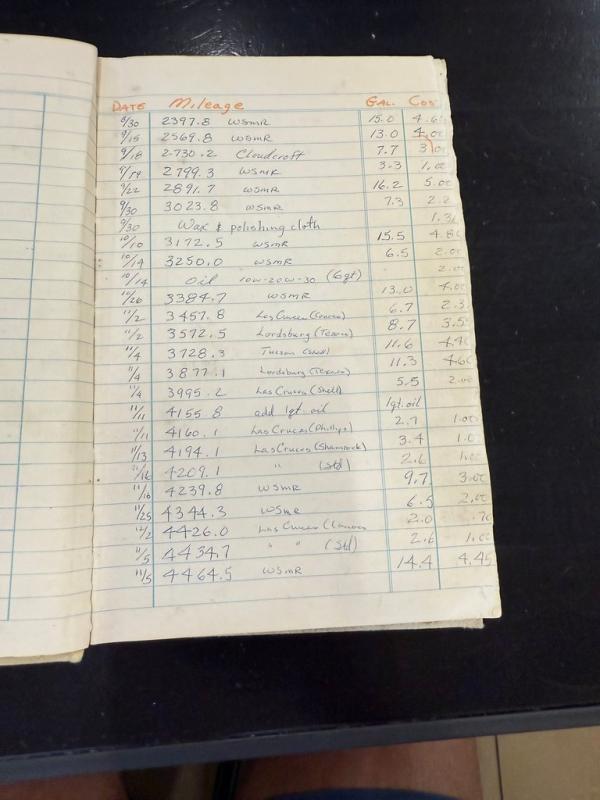 DATE Mileage GAL. Cos
8/30 2397.8 WSMR 15.0 4.6
9/15 2569.8 WSMR 13.0 4.00
9/18 2730.2 Cloudcroft 7.7 3.00
9/19 2799.3 WSMR 3.3 1.00
9/22 2891.7 WSMR 16.2 5.00
9/30 3023.8 WSMR 7.3 2.2
9/30 Wax & polishing cloth 1.3
10/10 3172.5 WSMR 15.5 4.80
10/14 3250.0 WSMR 6.5 2.00
10/14 Oil 10W-20W-30 (6qt) 2.00
10/26 3384.7 WSMR 13.0 4.00
11/2 3457.8 Las Cruces 6.7 2.3
11/2 3572.5 Lordsburg (Texaco) 8.7 3.5
11/4 3728.3 Tucson (Shell) 11.6 4.4
11/4 3877.1 Lordsburg (Texaco) 11.3 4.6
11/4 3995.2 Las Cruces (Shell) 5.5 2.00
11/11 4155.8 add 1qt. oil 1qt. oil
11/11 4160.1 Las Cruces (Phillips) 2.7 1.00
11/13 4194.1 Las Cruces (Shamrock) 3.4 1.0
11/16 4209.1 " (Std) 2.6 1.00
11/16 4239.8 WSMR 9.7 3.00
11/25 4344.3 WSMR 6.5 2.00
4426.0 Las Cruces 2.0 .70
11/5 4434.7 " " (Std) 2.6 1.00
11/5 4464.5 WSMR 14.4 4.45